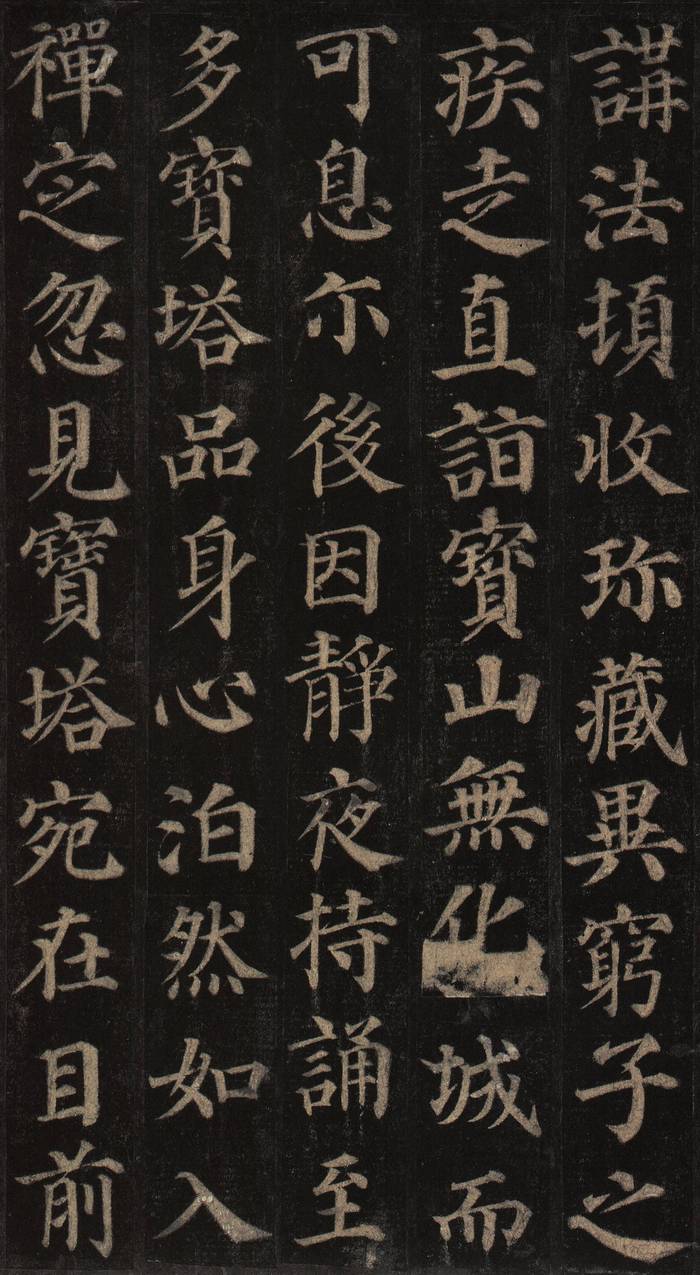 講法頓收珎藏異窮子之
疾走直詣寶山無化城而
可息尓後因靜夜持誦至
多寶塔品身心泊然如入
禪定忽見寶塔宛在目前